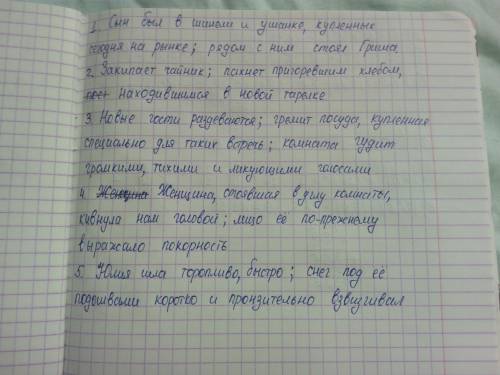 1. Сын был в шинели и ушанке, купленных
сегодня на рынке; рядом с ним стоял Гриша
2. Закипает чайник; пахнет пригоревшим хлебом,
находившимся в новой тарелке
3. Новые гости раздеваются; гремит посуда, купленная
специально для таких встреч; комната гудит
громкими, тихими и ликующими голосами
4. Женщина, стоявшая в углу комнаты,
кивнула нам головой; лицо её по-прежнему
выражало покорность
5. Юлия шла торопливо, быстро; снег под её
подошвами коротко и пронзительно взвизгивал